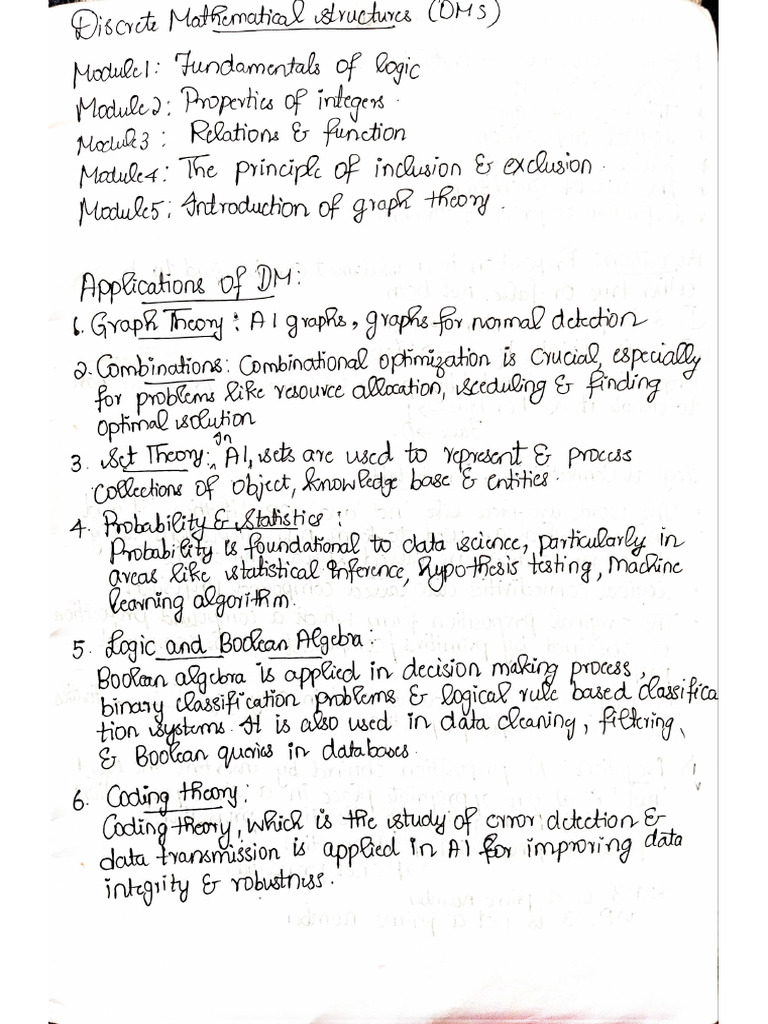 Discrete Mathematical structures (DMS)
Module1: Fundamentals of logic
Module2: Properties of integers.
Module3: Relations & function
Module4: The principle of inclusion & exclusion.
Module5: Introduction of graph theory.
Applications of DM:
1. Graph Theory: AI graphs, graphs for normal detection
2. Combinations: Combinational optimization is crucial, especially
for problems like resource allocation, sceduling & finding
optimal solution
3. Set Theory: In AI, sets are used to represent & process
collections of object, knowledge base & entities.
4. Probability & Statistics:
Probability is foundational to data science, particularly in
areas like statistical inference, hypothesis testing, machine
learning algorithm.
5. Logic and Boolean Algebra:
Boolean algebra is applied in decision making process,
binary classification problems & logical rule based classifica
tion systems. It is also used in data cleaning, filtering,
& Boolean queries in databases.
6. Coding theory:
Coding theory, which is the study of error detection &
data transmission is applied in AI for improving data
integrity & robustness.